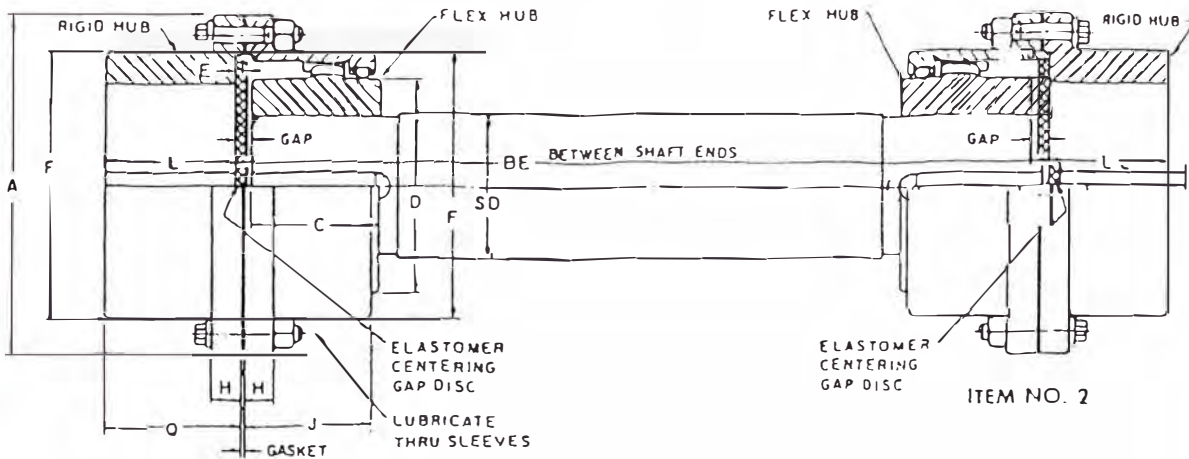 RIGID HUB
FLEX HUB
FLEX HUB
RIGID HUB
E
GAP
GAP
A
F
L
BE BETWEEN SHAFT ENDS
L
D
SD
F
C
ELASTOMER
CENTERING
GAP DISC
ELASTOMER
CENTERING
GAP DISC
ITEM NO. 2
H H
LUBRICATE
THRU SLEEVES
Q
J
GASKET